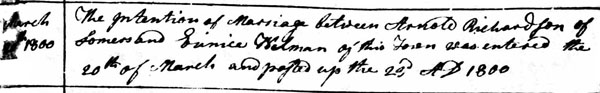 March The Intention of Marriage between Arnold Richardson of
1800 Somers and Eunice Kelman of this Town was entered the
20th of March and posted up the 23d AD 1800